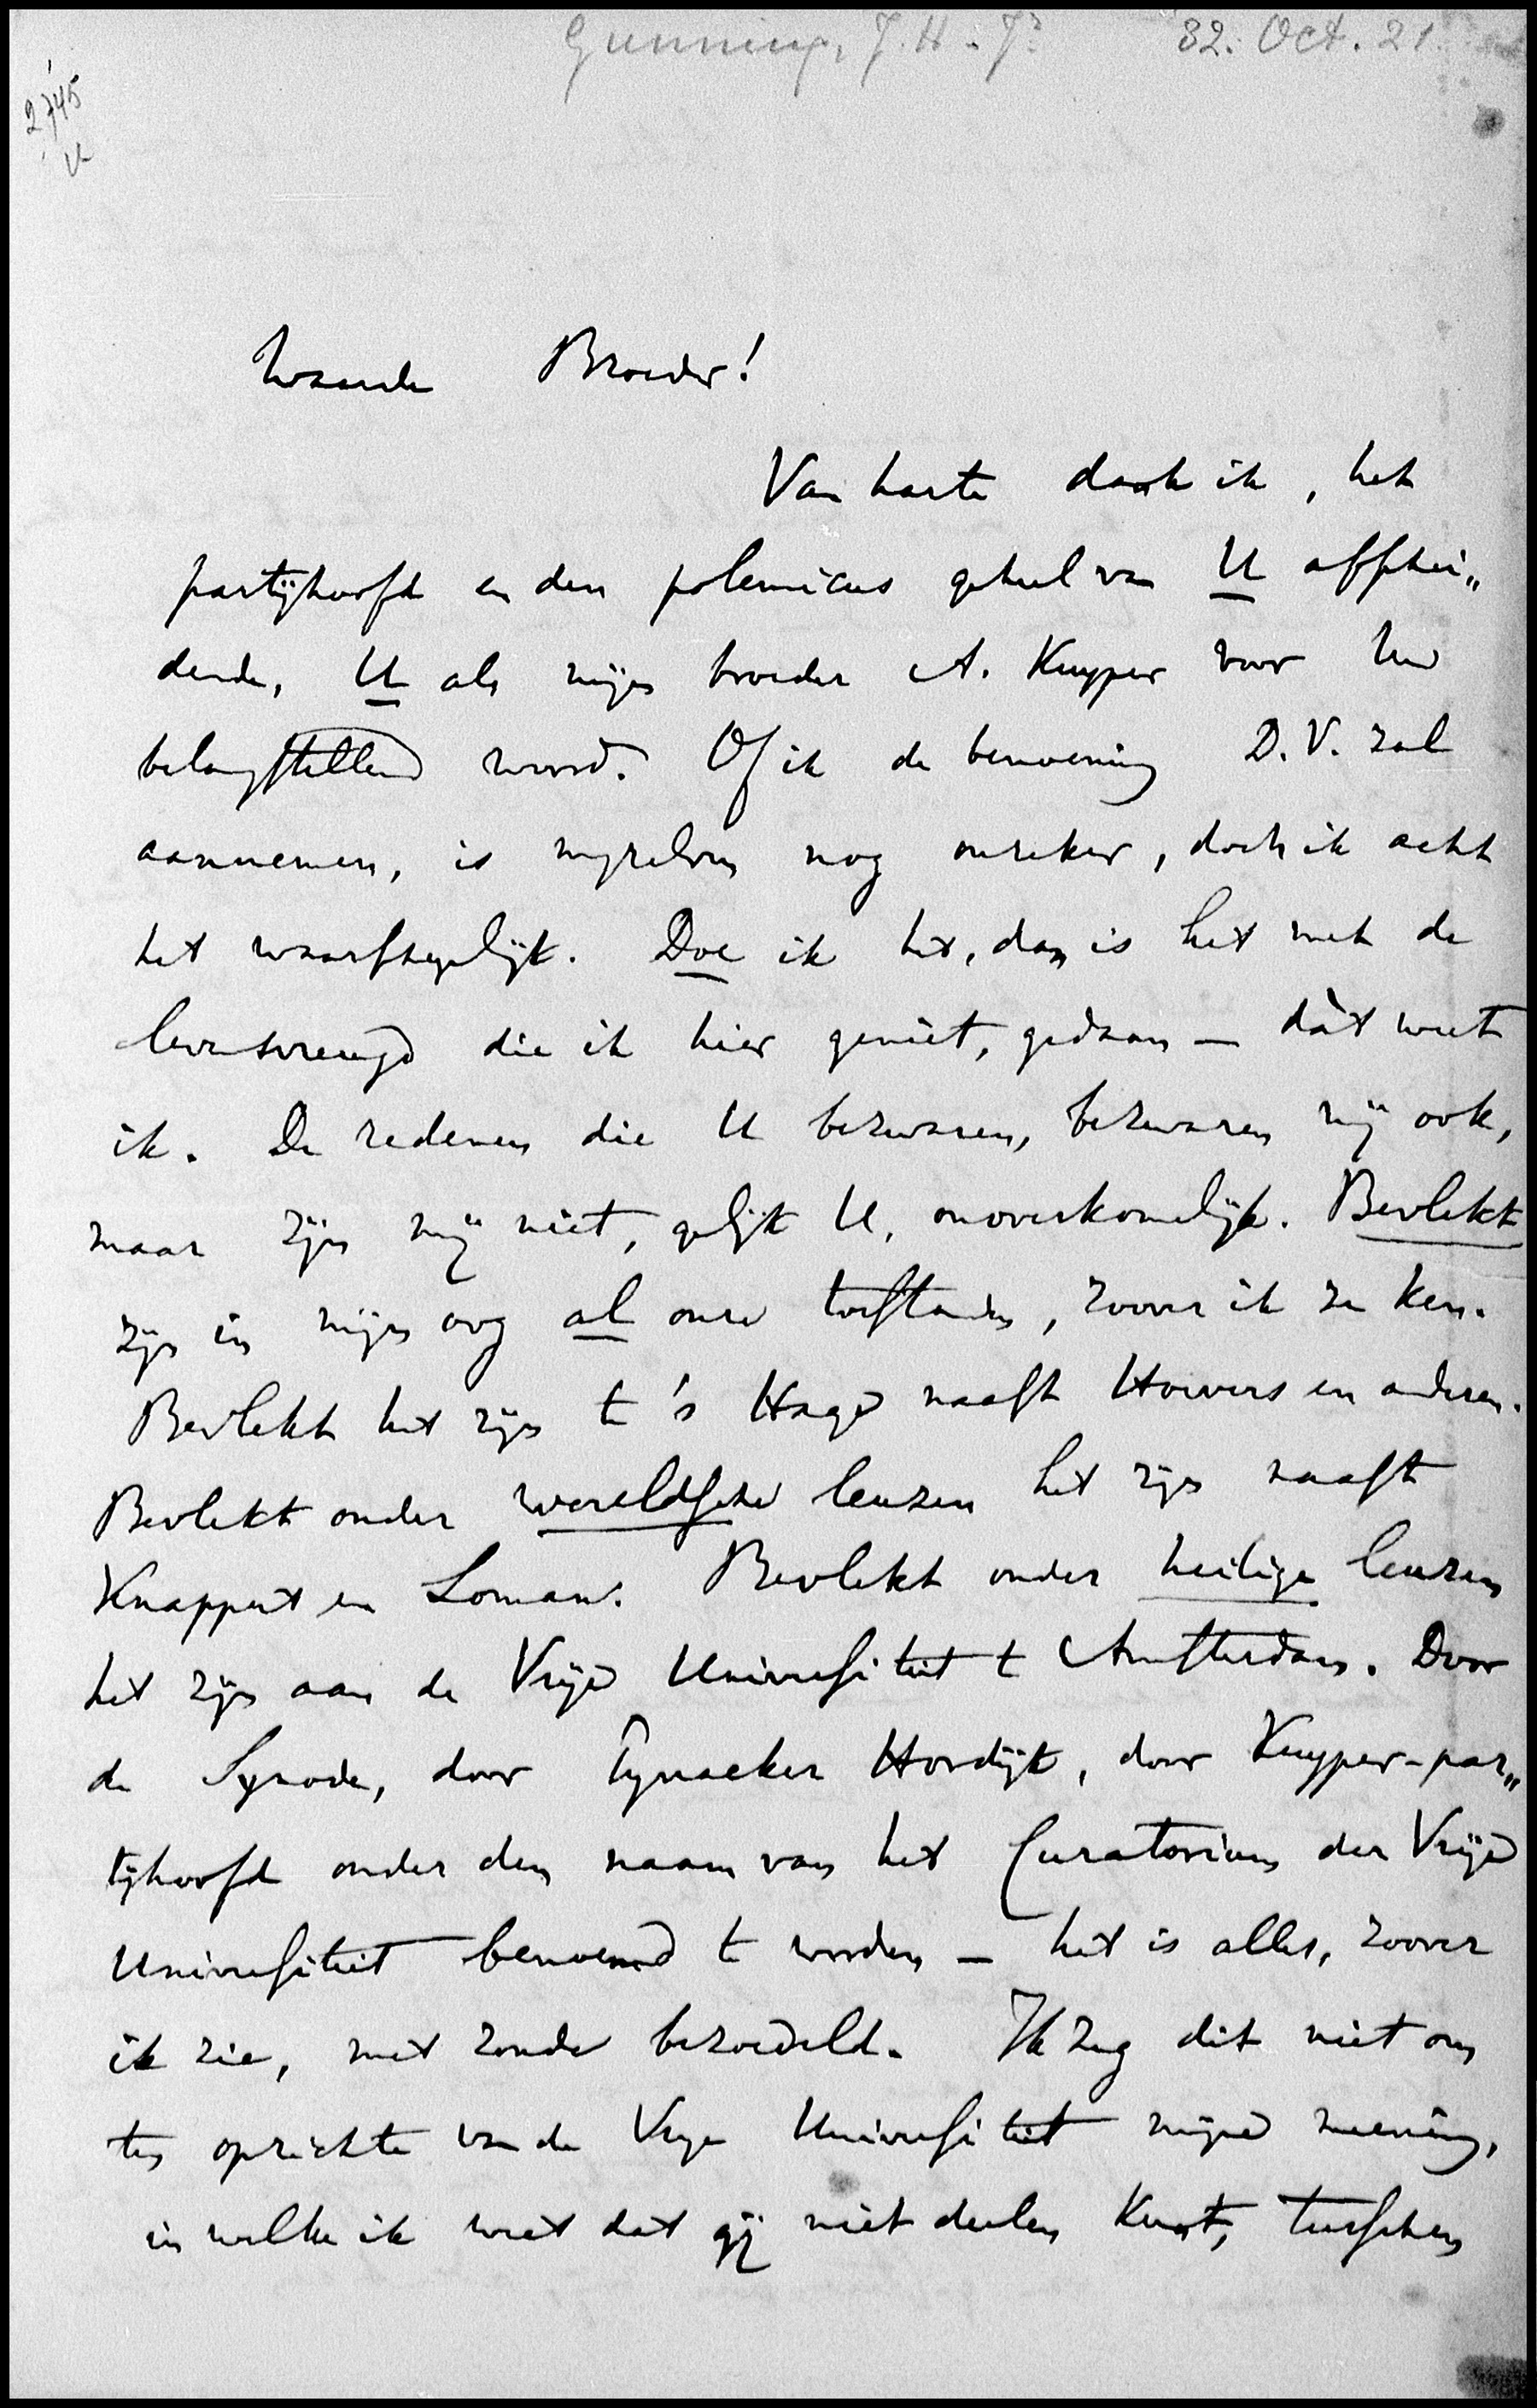 Gunning, J.H. Jr 82. Oct. 21
2745
Waarde Broeder!
Van harte dank ik, het
partijhoofd en den polemicus geheel van U afschei„
dende, U als mijn broeder A. Kuyper voor Uw
belangstellend woord. Of ik de benoeming D.V. zal
aannemen, is mijzelven nog onzeker, doch ik acht
het waarschijnlijk. Doe ik het, dan is het met de
levensvreugd die ik hier geniet, gedaan — dàt weet
ik. De redenen die U bezwaren, bezwaren mij ook,
maar zijn mij niet, gelijk U, onoverkomelijk. Bevlekt
zijn in mijn oog al onze toestanden, zoover ik ze ken.
Bevlekt het zijn te 's Hage naast Hoevers en anderen.
Bevlekt onder wereldsche leuzen het zijn naast
Knappert en Loman. Bevlekt onder heilige leuzen
het zijn aan de Vrije Universiteit te Amsterdam. Door
de Synode, door Tijnacker Hordijk, door Kuyper-par„
tijhoofd onder den naam van het Curatorium der Vrije
Universiteit benoemd te worden — het is alles, zoover
ik zie, met zonde bezoedeld. Ik zeg dit niet om
ten opzichte van de Vrije Universiteit mijne meening,
in welke ik weet dat gij niet deelen kunt, tusschen